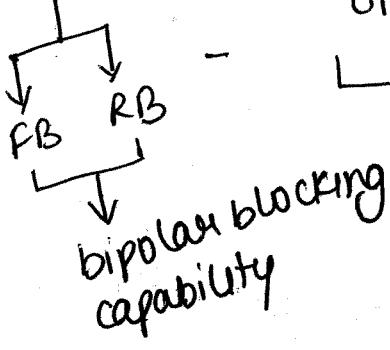 FB RB
bipolar blocking
capability